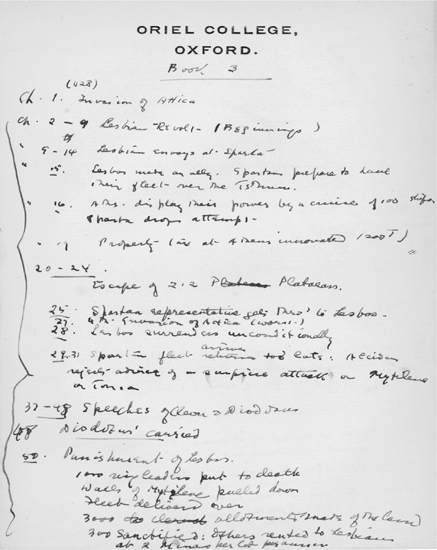 ORIEL COLLEGE,
OXFORD.
Book 3
(428)
Ch. 1. Invasion of Attica
Ch. 2-9 Lesbian Revolt - (Beginnings)
" 9-14 Lesbian envoys at Sparta
" 15. Lesbos made an ally. Spartans prepare to haul
their fleet over the Isthmus.
" 16. Aths. display their power by a cruise of 100 ships.
Sparta drops attempt -
" 17 Property tax at Athens innovated (200 T)
20-24.
Escape of 212 Plataeans.
25. Spartan representative gets thro' to Lesbos -
27. Invasion of Attica (worst)
28. Lesbos surrenders unconditionally
29.31 Spartan fleet arrives too late: Alcidas
rejects advice of a surprise attack on Mytilene
or Ionia
37-48 Speeches of Cleon & Diodotus
48 Diodotus' carried
50. Punishment of Lesbos.
1000 ringleaders put to death
Walls of Mytilene pulled down
Fleet delivered over
3000 allotments made of the land
300 sanctified: others rented to Lesbians
at 2 Minas per lot per annum